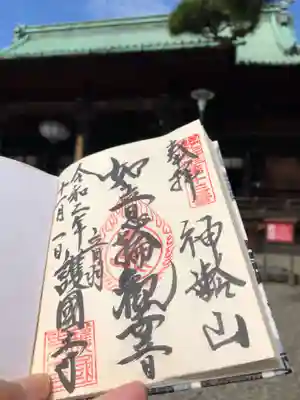 奉拝
神齢山
如意輪観世音
音羽
護國寺
令和二年
十一月一日